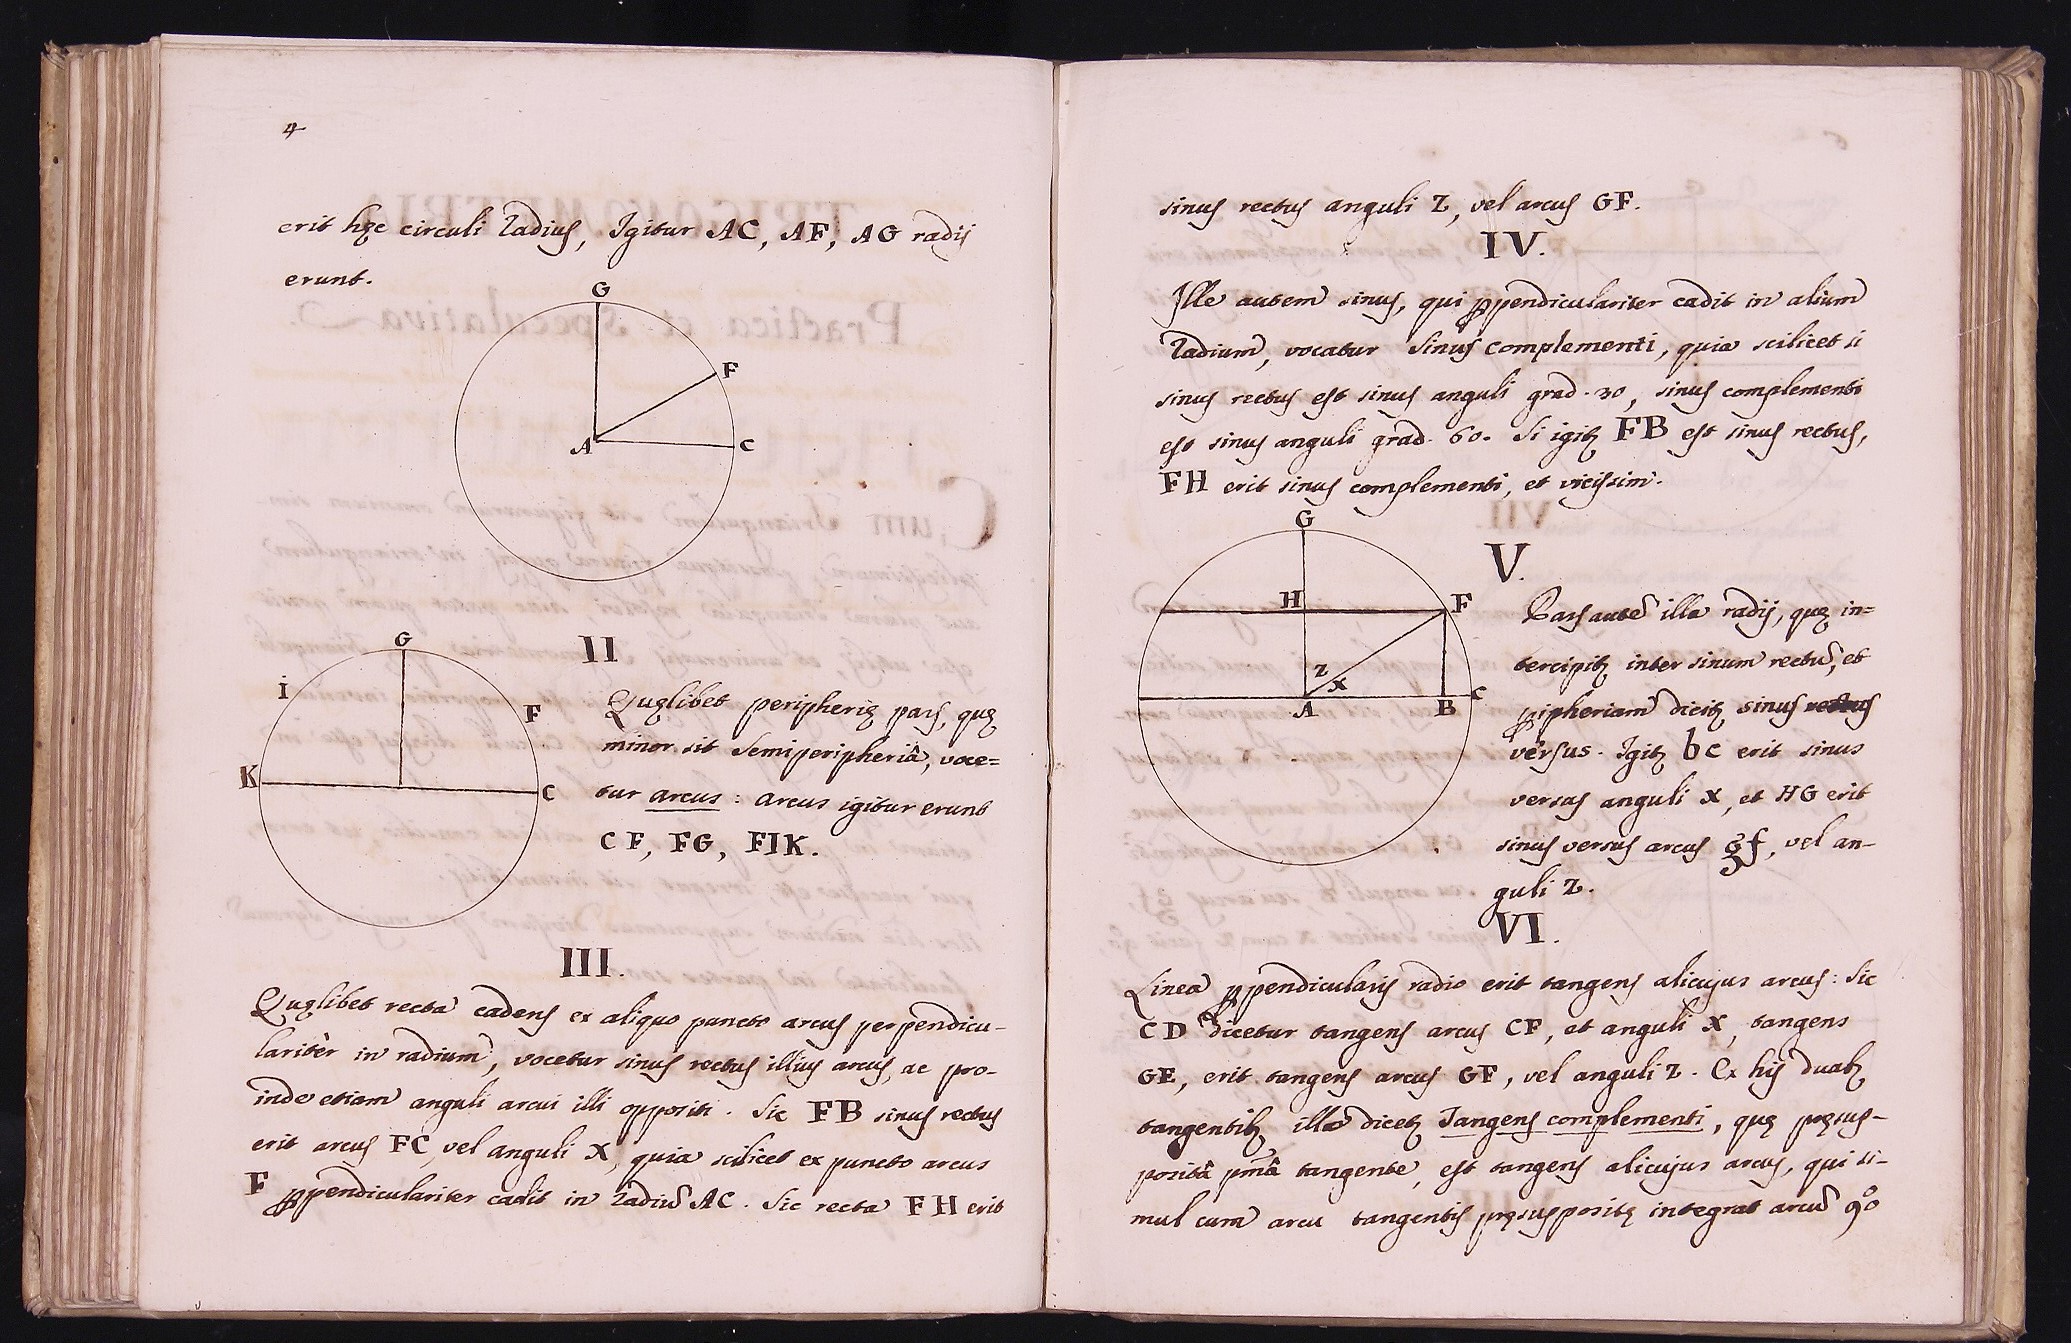 4
erit hęc circuli Radius, Igitur AC, AF, AG radij
erunt.
G
F
A
C
G
I
F
K
C
II
Quęlibet peripherię pars, quę
minor sit semiperipheriâ, voce=
tur arcus : arcus igitur erunt
CF, FG, FIK.
III.
Quęlibet recta cadens ex aliquo puncto arcus perpendicu-
laritèr in radium, vocetur sinus rectus illius arcus, ac pro-
inde etiam anguli arcui illi oppositi. Sic FB sinus rectus
erit arcus FC, vel anguli X, quia scilicet ex puncto arcus
F ꝑpendiculariter cadit in Radiũ AC. Sic recta FH erit
sinus rectus anguli Z, vel arcus GF.
IV.
Ille autem sinus, qui ꝑpendiculariter cadit in alium
Radium, vocatur Sinus complementi, quia scilicet si
sinus rectus est sinus anguli grad. 30, sinus complementi
est sinus anguli grad. 60. Si igitꝫ FB est sinus rectus,
FH erit sinus complementi, et vicissim.
G
H
F
Z
X
A
B
C
V.
Pars autẽ illa radij, quę in=
tercipitꝫ inter sinum rectũ, et
ꝑipheriam dicitꝫ sinus rectus
versus. Igitꝫ bc erit sinus
versus anguli X, et HG erit
sinus versus arcus gf, vel an-
guli Z.
VI.
Linea ꝑpendicularis radio erit tangens alicujus arcus: Sic
CD dicetur tangens arcus CF, et anguli X, tangens
GE, erit tangens arcus GF, vel anguli Z. Ex his duabꝫ
tangentibꝫ illa dicetꝫ Tangens complementi, quę pręsup-
positâ pr̃mâ tangente, est tangens alicujus arcus, qui si-
mul cum arcu tangentis pręsuppositę integrat arcũ 90